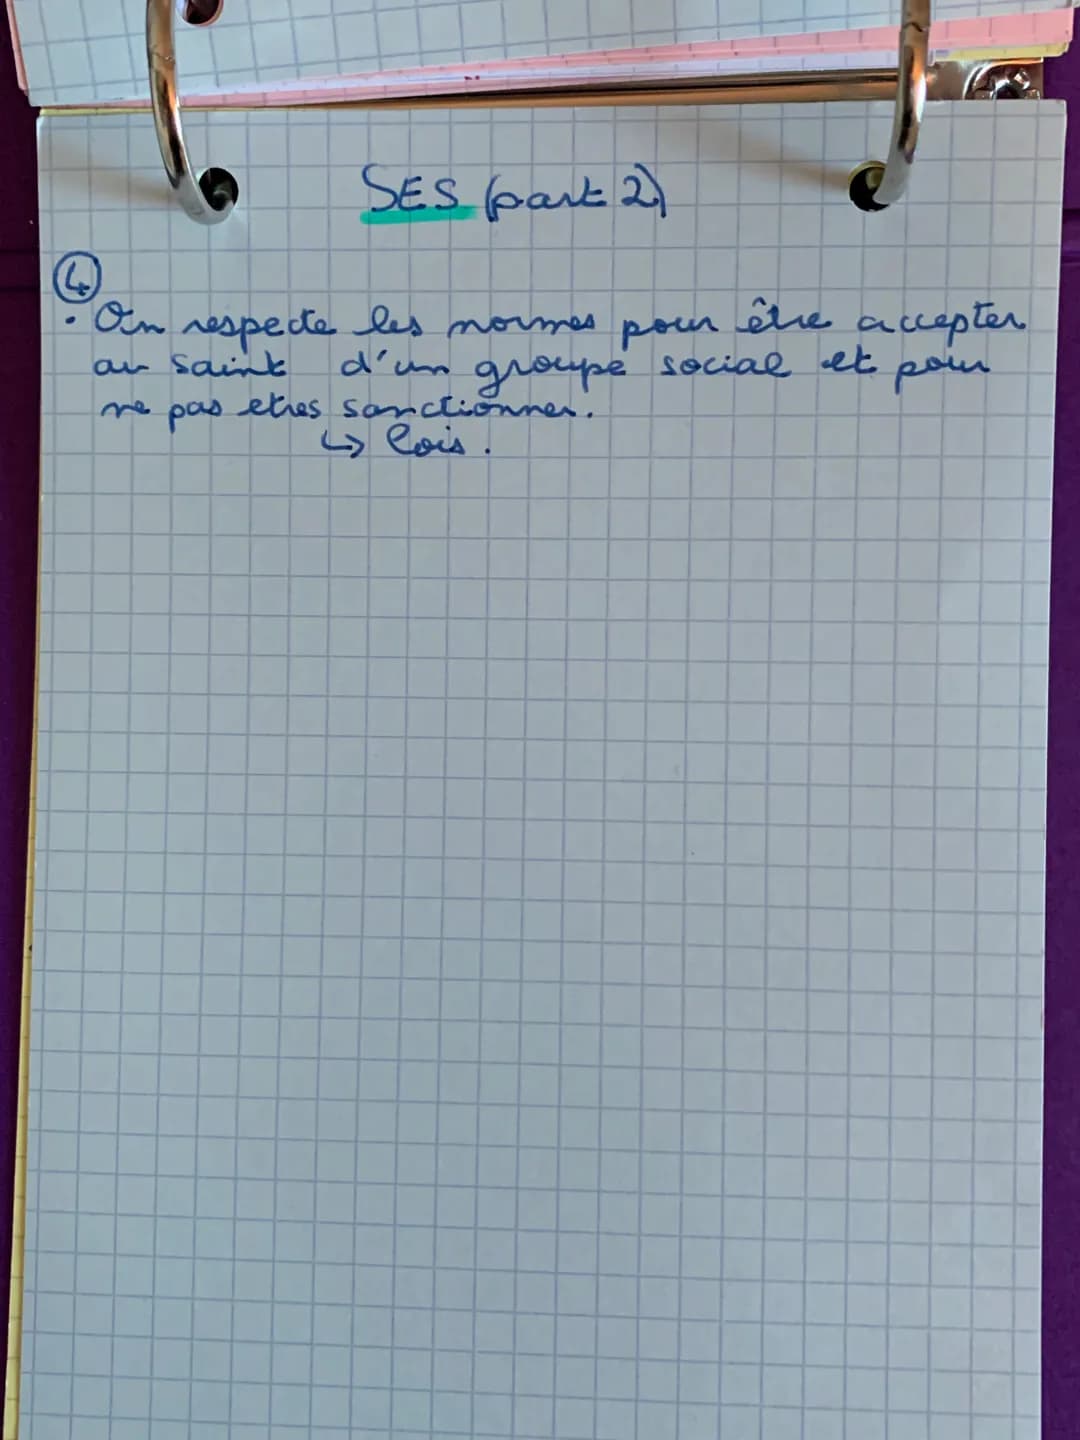 SES (part 2)
④
• On respecte les normes pour être accepter
au saint d'un groupe social et pour
ne pas etres sanctionner.
↳ lois.